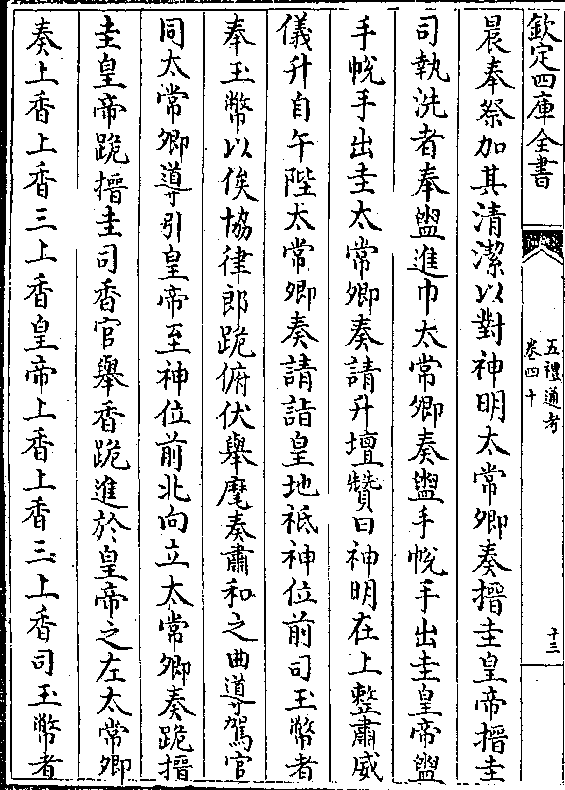 欽定四庫全書
五禮通考
卷四十
十三
晨奉祭加其清潔以對神明太常卿奏搢圭皇帝搢圭
司執洗者奉盥進巾太常卿奏盥手帨手出圭皇帝盥
手帨手出圭太常卿奏請升壇贊曰神明在上整肅威
儀升自午陛太常卿奏請詣皇地祗神位前司玉幣者
奉玉幣以俟協律郎跪俯伏舉麾奏肅和之曲導駕官
同太常卿導引皇帝至神位前北向立太常卿奏跪搢
圭皇帝跪搢圭司香官舉香跪進於皇帝之左太常卿
奏上香上香三上香皇帝上香上香三上香司玉幣者